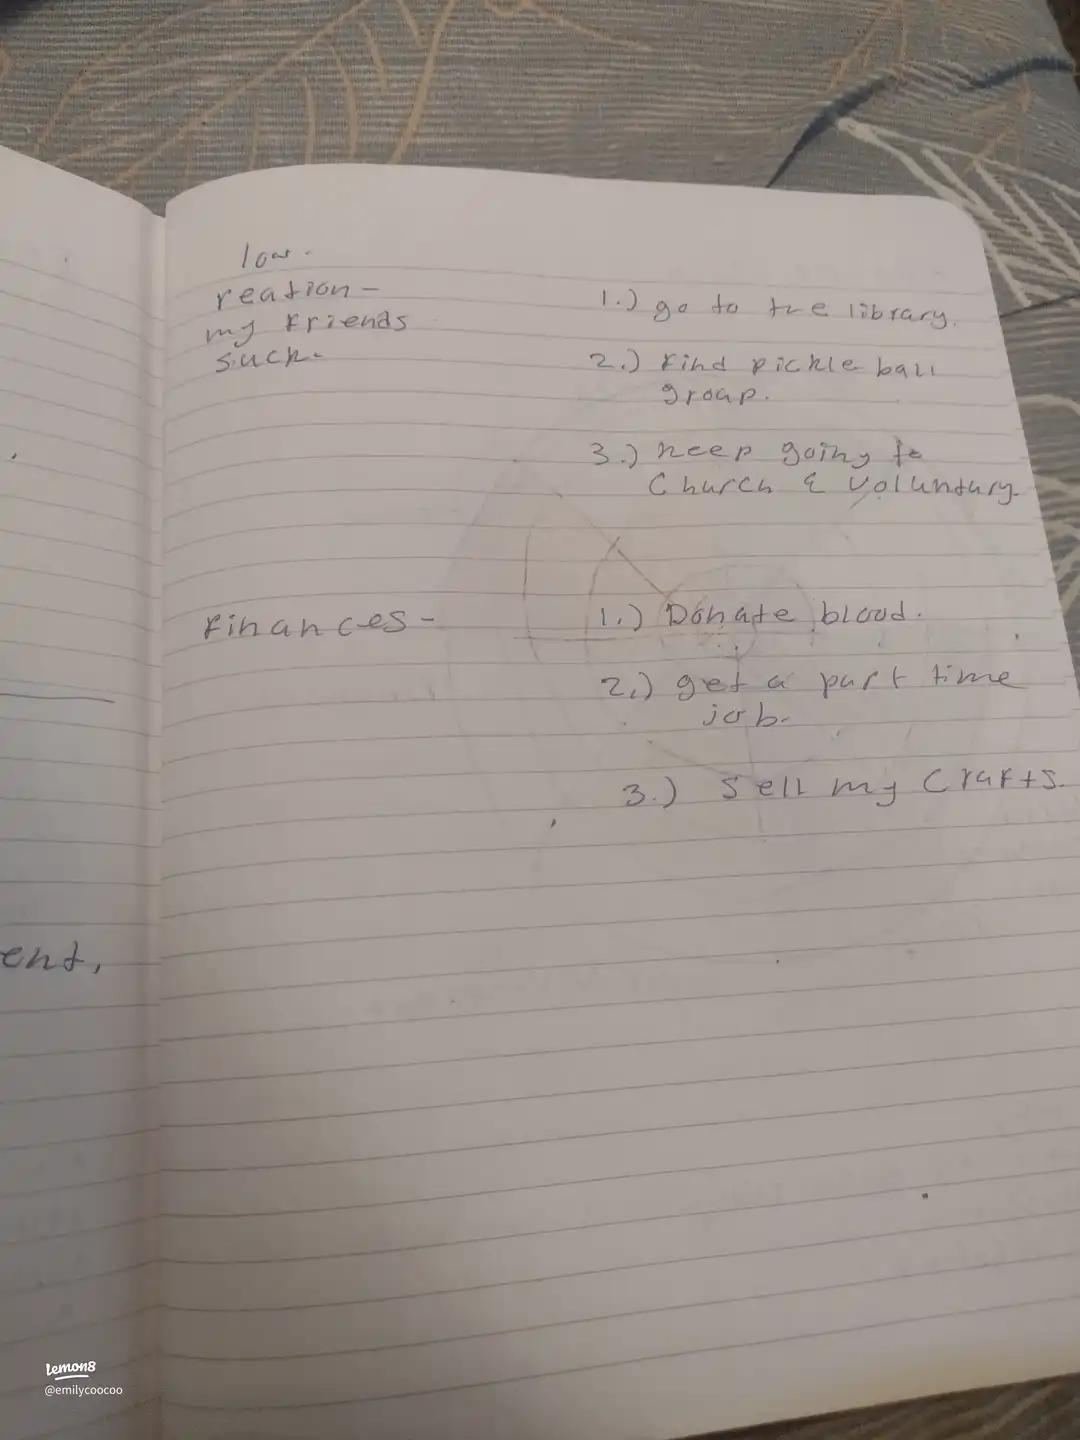 low.
reation -
my friends
suck.
1.) go to the library.
2.) Find pickle ball
group.
3.) keep going to
Church & voluntury
Finances -
1.) Donate blood.
2.) get a part time
job.
3.) Sell my Crafts.
ent,
lemon8
@emilycoocoo